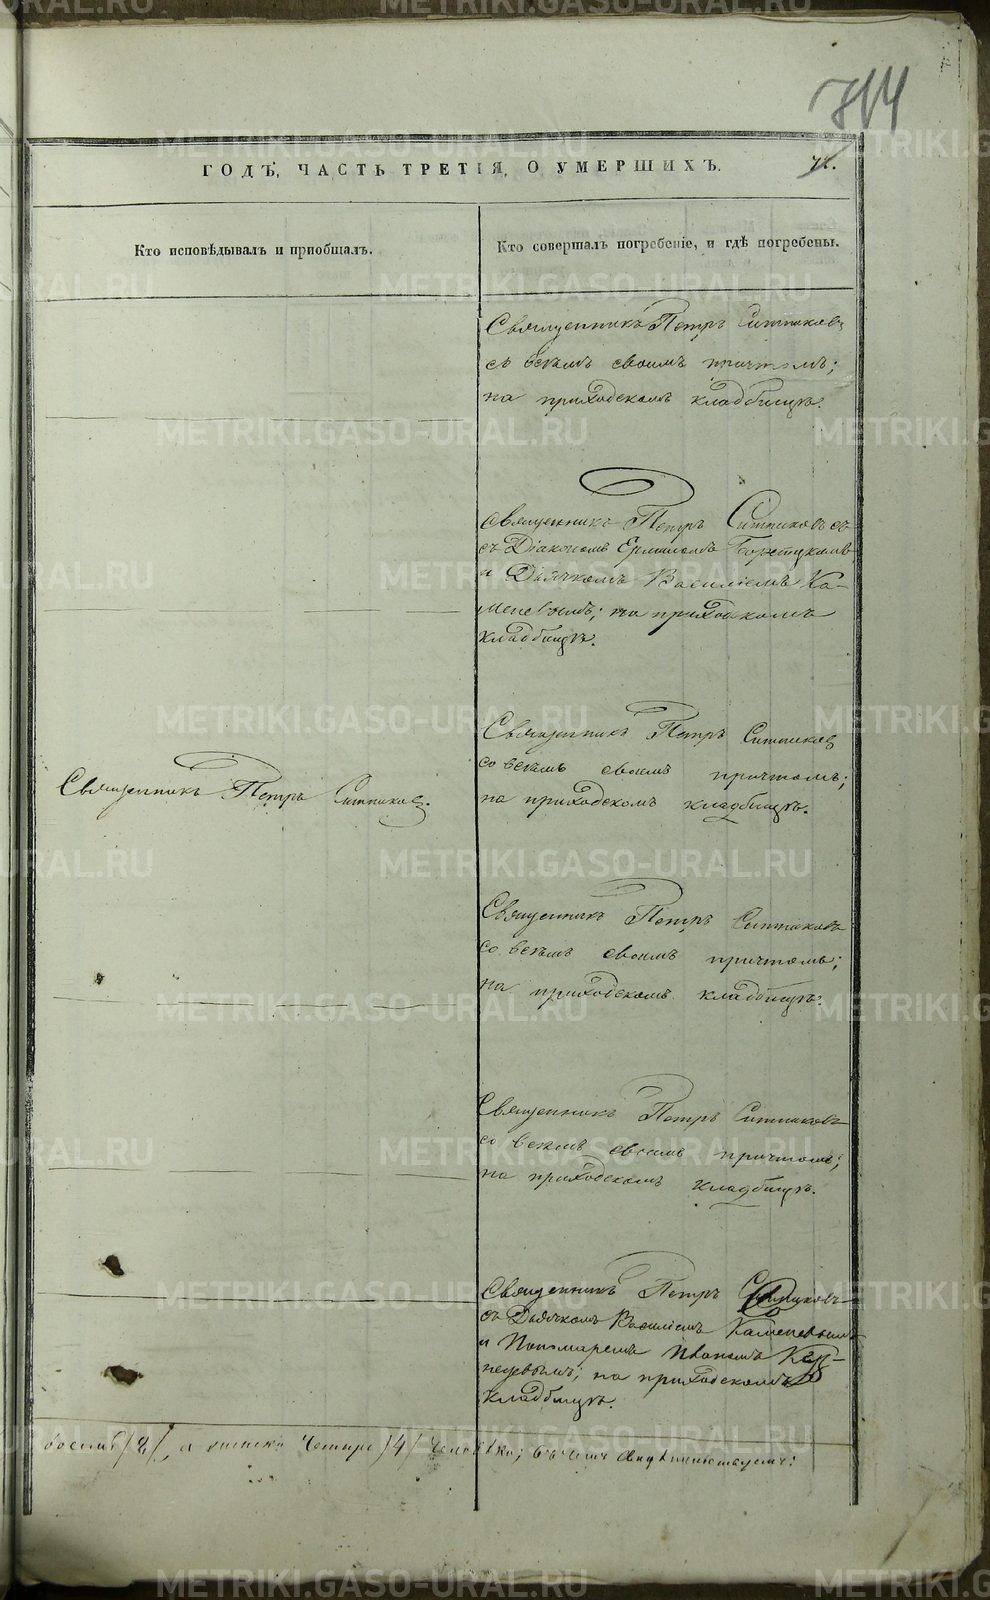 744
ГОДѢ, ЧАСТЬ ТРЕТІЯ, О УМЕРШИХЪ.
Кто исповѣдывалъ и пріобщалъ.
Кто совершалъ погребеніе, и гдѣ погребены.
Священникъ Петръ Ситниковъ
съ всѣмъ своимъ причтомъ;
на приходскомъ кладбищѣ.
Священникъ Петръ Ситниковъ съ
съ Діакономъ Ермиломъ
и Дьячкомъ Василіемъ Ка-
меневымъ; на приходскомъ
кладбищѣ.
Священникъ Петръ Ситниковъ.
Священникъ Петръ Ситниковъ
со всѣмъ своимъ причтомъ;
на приходскомъ кладбищѣ.
Священникъ Петръ Ситниковъ
со всѣмъ своимъ причтомъ;
на приходскомъ кладбищѣ.
Священникъ Петръ Ситниковъ
со всѣмъ своимъ причтомъ;
на приходскомъ кладбищѣ.
Священникъ Петръ Ситниковъ
съ Дьячкомъ Василіемъ Каменевымъ
и Пономаремъ Иваномъ
на приходскомъ
кладбищѣ.
восемь /8/, а женска четыре /4/ человѣка; въ чемъ свидѣтельствуемъ:
METRIKI.GASO-URAL.RU